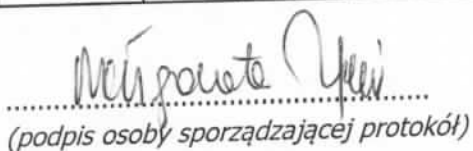 Małgorzata
(podpis osoby sporządzającej protokół)